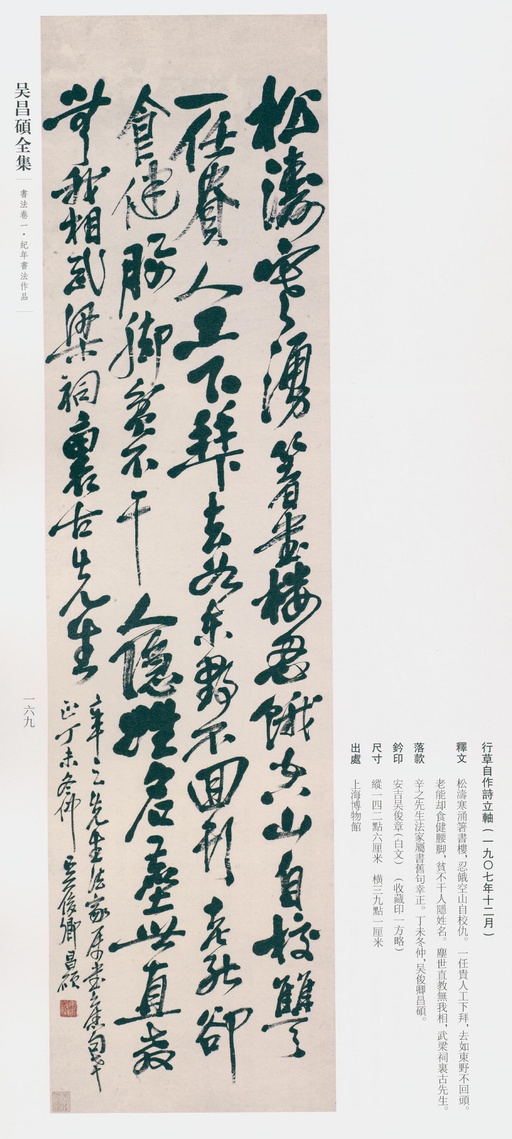 行草自作詩立軸（一九〇七年十二月）
釋文　松濤寒涌著書樓，忍餓空山自校仇。一任貴人工下拜，去如東野不回頭。
老能却食健腰脚，貧不干人隱姓名。塵世直教無我相，武梁祠裏古先生。
落款　辛之先生法家屬書舊句幸正。丁未冬仲，吴俊卿昌碩。
鈐印　安吉吴俊章（白文）　（收藏印一方略）
尺寸　縱一四二點六厘米　横三九點一厘米
出處　上海博物館
松濤寒湧著書樓忍餓空山自校讐
一任貴人工下拜去如東野不回頭老能卻
食健腰脚貧不干人隱姓名塵世直教
無我相武梁祠裏古先生
辛之先生法家屬書舊句幸
正丁未冬仲吳俊卿昌碩
吴昌碩全集
書法卷一・紀年書法作品
一六九